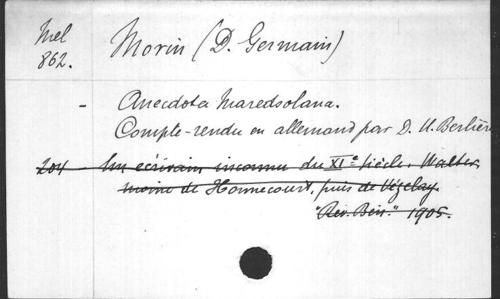 Mel
862.
Morin (D. Germain)
- Anecdota Maredsolana.
Compte-rendu en allemand par D. U. Berlière
204 - Un écrivain inconnu du XIe siècle, Walter
moine de Honnecourt, puis de Vézelay.
"Rev. Bén." 1905.